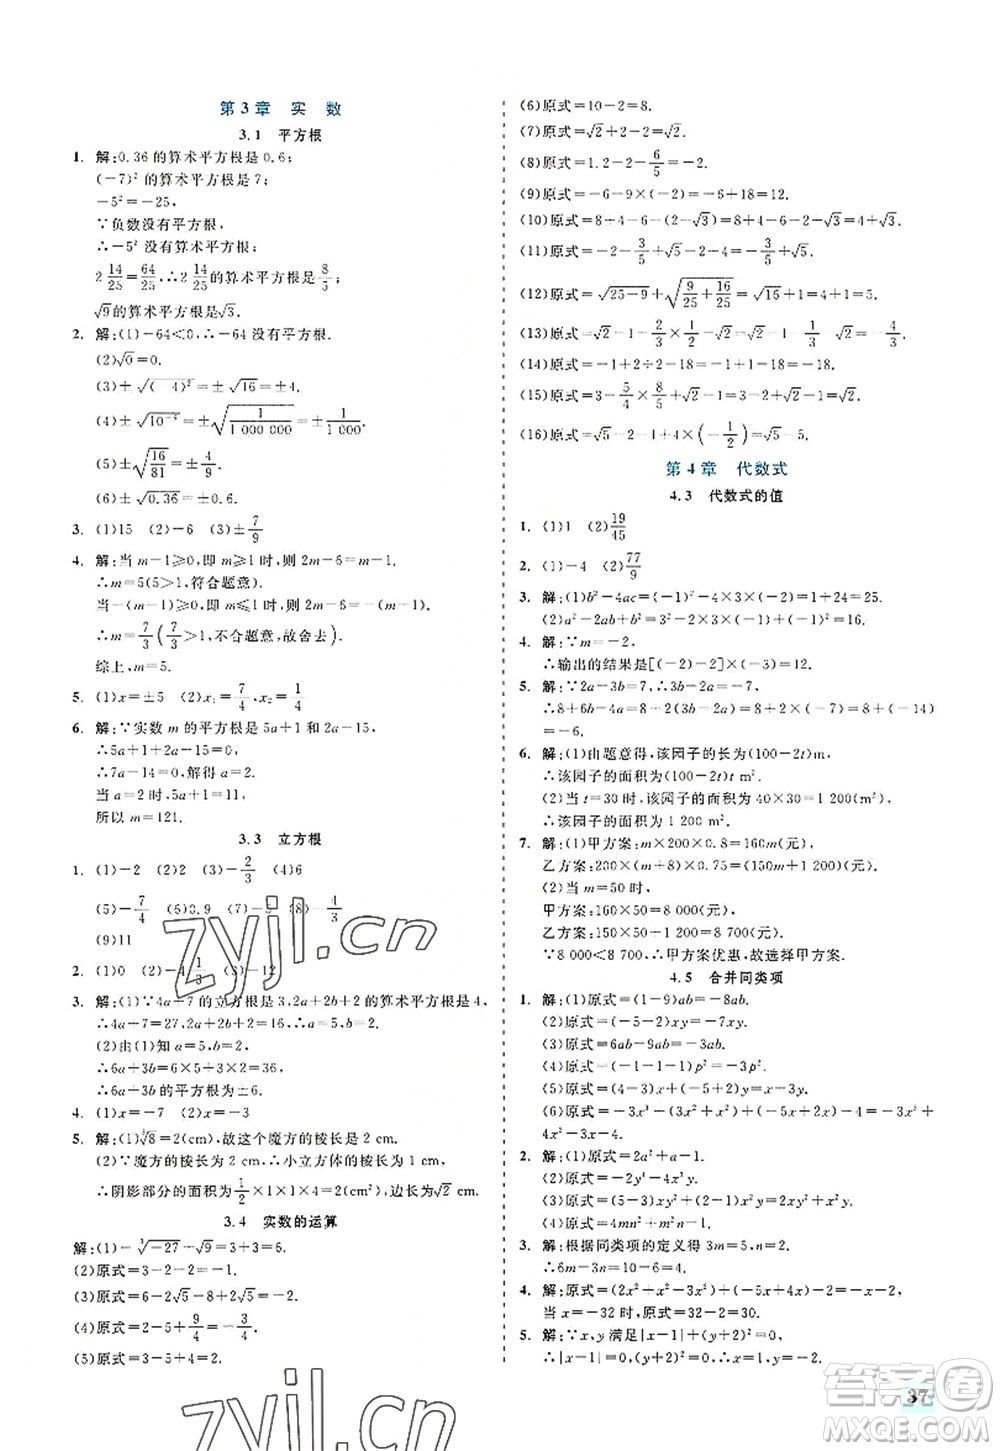 第3章 实 数
3.1 平方根
1. 解:0.36的算术平方根是0.6;
(-7)²的算术平方根是7;
-5²=-25,
∵负数没有平方根,
∴-5²没有算术平方根;
2 14/25=64/25,∴2 14/25的算术平方根是8/5;
√9的算术平方根是√3.
2. 解:(1)-64<0,∴-64没有平方根.
(2)√0=0.
(3)±√(-4)²=±√16=±4.
(4)±√10⁻⁶=±√(1/1 000 000)=±1/1 000.
(5)±√(16/81)=±4/9.
(6)±√0.36=±0.6.
3. (1)15 (2)-6 (3)±7/9
4. 解:当m-1≥0,即m≥1时,则2m-6=m-1,
∴m=5(5>1,符合题意);
当-(m-1)≥0,即m≤1时,则2m-6=-(m-1),
∴m=7/3(7/3>1,不合题意,故舍去).
综上,m=5.
5. (1)x=±5 (2)x₁=7/4,x₂=1/4
6. 解:∵实数m的平方根是5a+1和2a-15,
∴5a+1+2a-15=0,
∴7a-14=0,解得a=2.
当a=2时,5a+1=11,
所以m=121.
3.3 立方根
1. (1)-2 (2)-1 (3)-2/3 (4)6
(5)-7/4 (6)0.9 (7)-2 (8)-4/3
(9)11
2. (1)0 (2)-4 1/3 (3)-12
3. 解:(1)∵4a+7的立方根是3,2a+2b+2的算术平方根是4,
∴4a+7=27,2a+2b+2=16,∴a=5,b=2.
(2)由(1)知a=5,b=2,
∴6a+3b=6×5+3×2=36,
∴6a+3b的平方根为±6.
4. (1)x=-7 (2)x=4
5. 解:(1)∛8=2(cm),故这个魔方的棱长为2 cm.
(2)∵魔方的棱长为2 cm,∴小立方体的棱长为1 cm,
∴阴影部分的面积为1/2×1×1×4=2(cm²),边长为√2 cm.
3.4 实数的运算
解:(1)-∛-27-√9=3+3=6.
(2)原式=3-2=1.
(3)原式=6-2√5-8+2√5=-2.
(4)原式=2-5+9/4=-3/4.
(5)原式=3-5+4=2.
(6)原式=10-2=8.
(7)原式=√2+5-2=√2+3.
(8)原式=1.2-2-6/5=-2.
(9)原式=-6-9×(-2)=-6+18=12.
(10)原式=8+4-6-(2-√3)=8+4-6-2+√3=4+√3.
(11)原式=-2-3/5+√5-2-4=√5-8 3/5.
(12)原式=√25-9+√(9/25+16/25)=√16+1=4+1=5.
(13)原式=√2-1-2/3×1/4=√2-1-1/6=√2-1 1/6.
(14)原式=-1+2÷2-18=-1+1-18=-18.
(15)原式=3-5/4×8/5+√2-1=3-2+√2-1=√2.
(16)原式=√5-2-1+4×(-1/2)=√5-5.
第4章 代数式
4.3 代数式的值
1. (1)1 (2)19/45
2. (1)-4 (2)77/9
3. 解:(1)b²-4ac=(-1)²-4×3×(-2)=1+24=25.
(2)a²-2ab+b²=3²-2×3×(-1)+(-1)²=16.
4. 解:∵m=-2,
∴输出的结果是[(-2)-2]×(-3)=12.
5. 解:∵2a-3b=7,
∴8+6b-4a=8-2(2a-3b)=8+2×(-7)=8+(-14)
=-6.
6. 解:(1)由题意得,该园子的长为(100-2t)m,
∴该园子的面积为(100-2t)t m².
(2)当t=30时,该园子的面积为40×30=1 200(m²),
∴该园子的面积为1 200 m².
7. 解:(1)甲方案:m×200×0.8=160m(元),
乙方案:200×(m+8)×0.75=(150m+1 200)(元).
(2)当m=50时,
甲方案:160×50=8 000(元),
乙方案:150×50+1 200=8 700(元).
∵8 000<8 700,∴甲方案优惠,故选择甲方案.
4.5 合并同类项
1. 解:(1)原式=(1-9)ab=-8ab.
(2)原式=(-5-2)xy=-7xy.
(3)原式=6ab-ab=5ab.
(4)原式=(-1-1-1)p²=-3p².
(5)原式=(4-3)x²y+(2-5)xy²=x²y-3xy².
(6)原式=-3x²+3x²-14x+5x+6-9=(-3+3)x²+
(-14+5)x+(6-9)=-9x-3.
2. 解:(1)原式=2a²+a-1.
(2)原式=2y⁴-4x²y-y³.
(3)原式=(5-3)xy²+(2-6)x²y=2xy²-4x²y.
(4)原式=4mn²+mn-m²-n².
3. 解:根据同类项的定义得3m=2,2n=2,
∴6m-3n=4-3=1.
4. 解:原式=(2x²+x²-3x²)+(-5x+4x)-2=-x-2,
当x=-32时,原式=32-2=30.
5. 解:∵x,y满足|x-1|+(y+2)²=0,
∴|x-1|=0,(y+2)²=0,解得x=1,y=-2.
37
zyjl.cn
zyjl.cn
答案圈
MXQE.COM